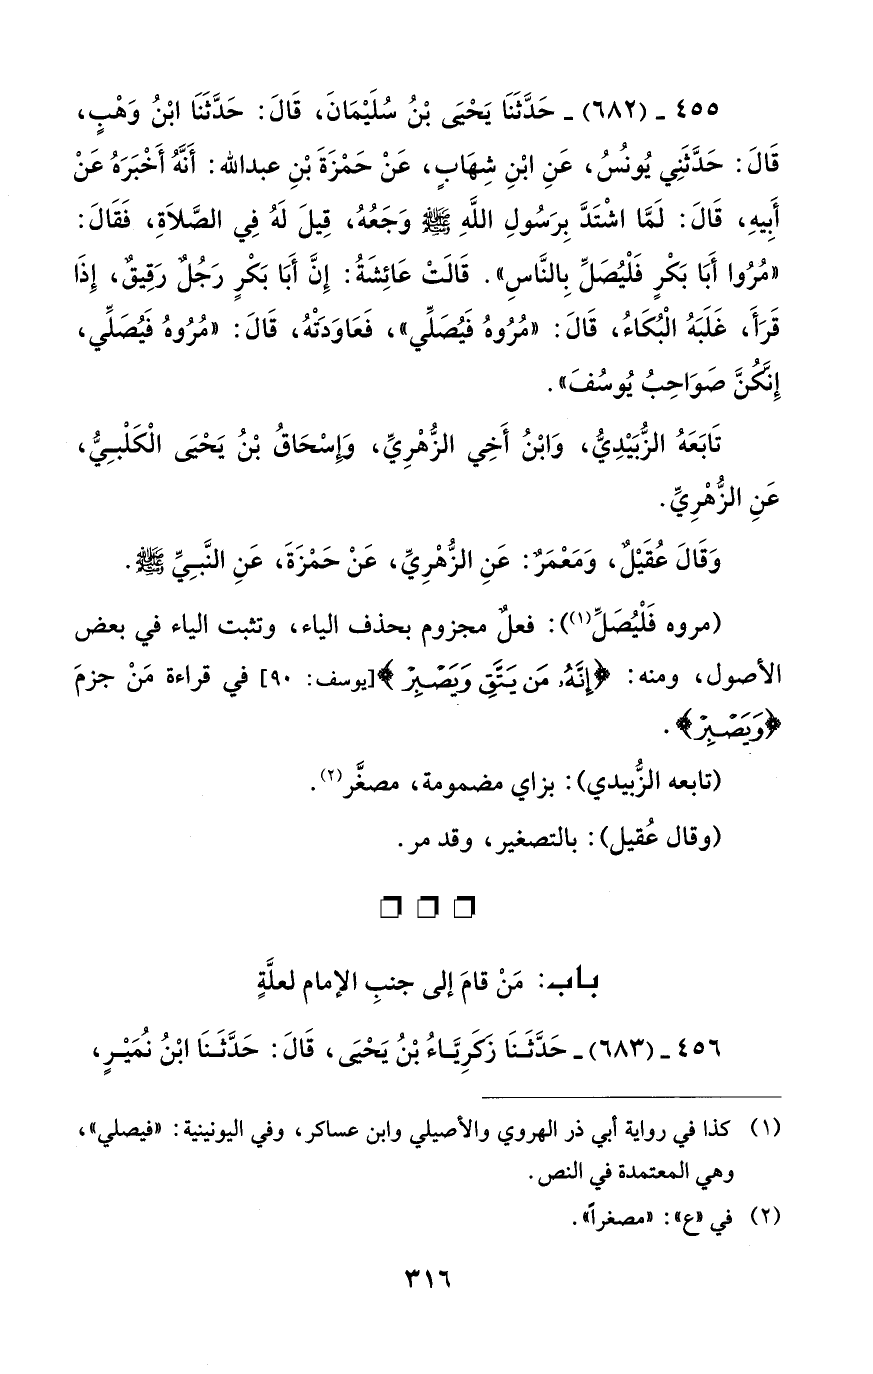 ٤٥٥ ـ (٦٨٢) ـ حَدَّثَنَا يَحْيَى بْنُ سُلَيْمَانَ، قَالَ: حَدَّثَنَا ابْنُ وَهْبٍ،
قَالَ: حَدَّثَنِي يُونُسُ، عَنِ ابْنِ شِهَابٍ، عَنْ حَمْزَةَ بْنِ عبدالله: أَنَّهُ أَخْبَرَهُ عَنْ
أَبِيهِ، قَالَ: لَمَّا اشْتَدَّ بِرَسُولِ اللَّهِ ﷺ وَجَعُهُ، قِيلَ لَهُ فِي الصَّلَاةِ، فَقَالَ:
«مُرُوا أَبَا بَكْرٍ فَلْيُصَلِّ بِالنَّاسِ». قَالَتْ عَائِشَةُ: إِنَّ أَبَا بَكْرٍ رَجُلٌ رَقِيقٌ، إِذَا
قَرَأَ، غَلَبَهُ الْبُكَاءُ، قَالَ: «مُرُوهُ فَيُصَلِّي»، فَعَاوَدَتْهُ، قَالَ: «مُرُوهُ فَيُصَلِّي،
إِنَّكُنَّ صَوَاحِبُ يُوسُفَ».
تَابَعَهُ الزُّبَيْدِيُّ، وَابْنُ أَخِي الزُّهْرِيِّ، وَإِسْحَاقُ بْنُ يَحْيَى الْكَلْبِيُّ،
عَنِ الزُّهْرِيِّ.
وَقَالَ عُقَيْلٌ، وَمَعْمَرٌ: عَنِ الزُّهْرِيِّ، عَنْ حَمْزَةَ، عَنِ النَّبِيِّ ﷺ.
(مروه فَلْيُصَلِّ(١)): فعلٌ مجزوم بحذف الياء، وتثبت الياء في بعض
الأصول، ومنه: ﴿إِنَّهُۥ مَن يَتَّقِ وَيَصْبِرْ﴾[يوسف: ٩٠] في قراءة مَنْ جزمَ
﴿وَيَصْبِرْ﴾.
(تابعه الزُّبيدي): بزاي مضمومة، مصغَّر(٢).
(وقال عُقيل): بالتصغير، وقد مر.
❒ ❒ ❒
باب: مَنْ قامَ إلى جنبِ الإمام لعلَّةٍ
٤٥٦ ـ (٦٨٣) ـ حَدَّثَنَا زَكَرِيَّاءُ بْنُ يَحْيَى، قَالَ: حَدَّثَنَا ابْنُ نُمَيْرٍ،
(١) كذا في رواية أبي ذر الهروي والأصيلي وابن عساكر، وفي اليونينية: «فيصلي»،
وهي المعتمدة في النص.
(٢) في «ع»: «مصغراً».
٣١٦